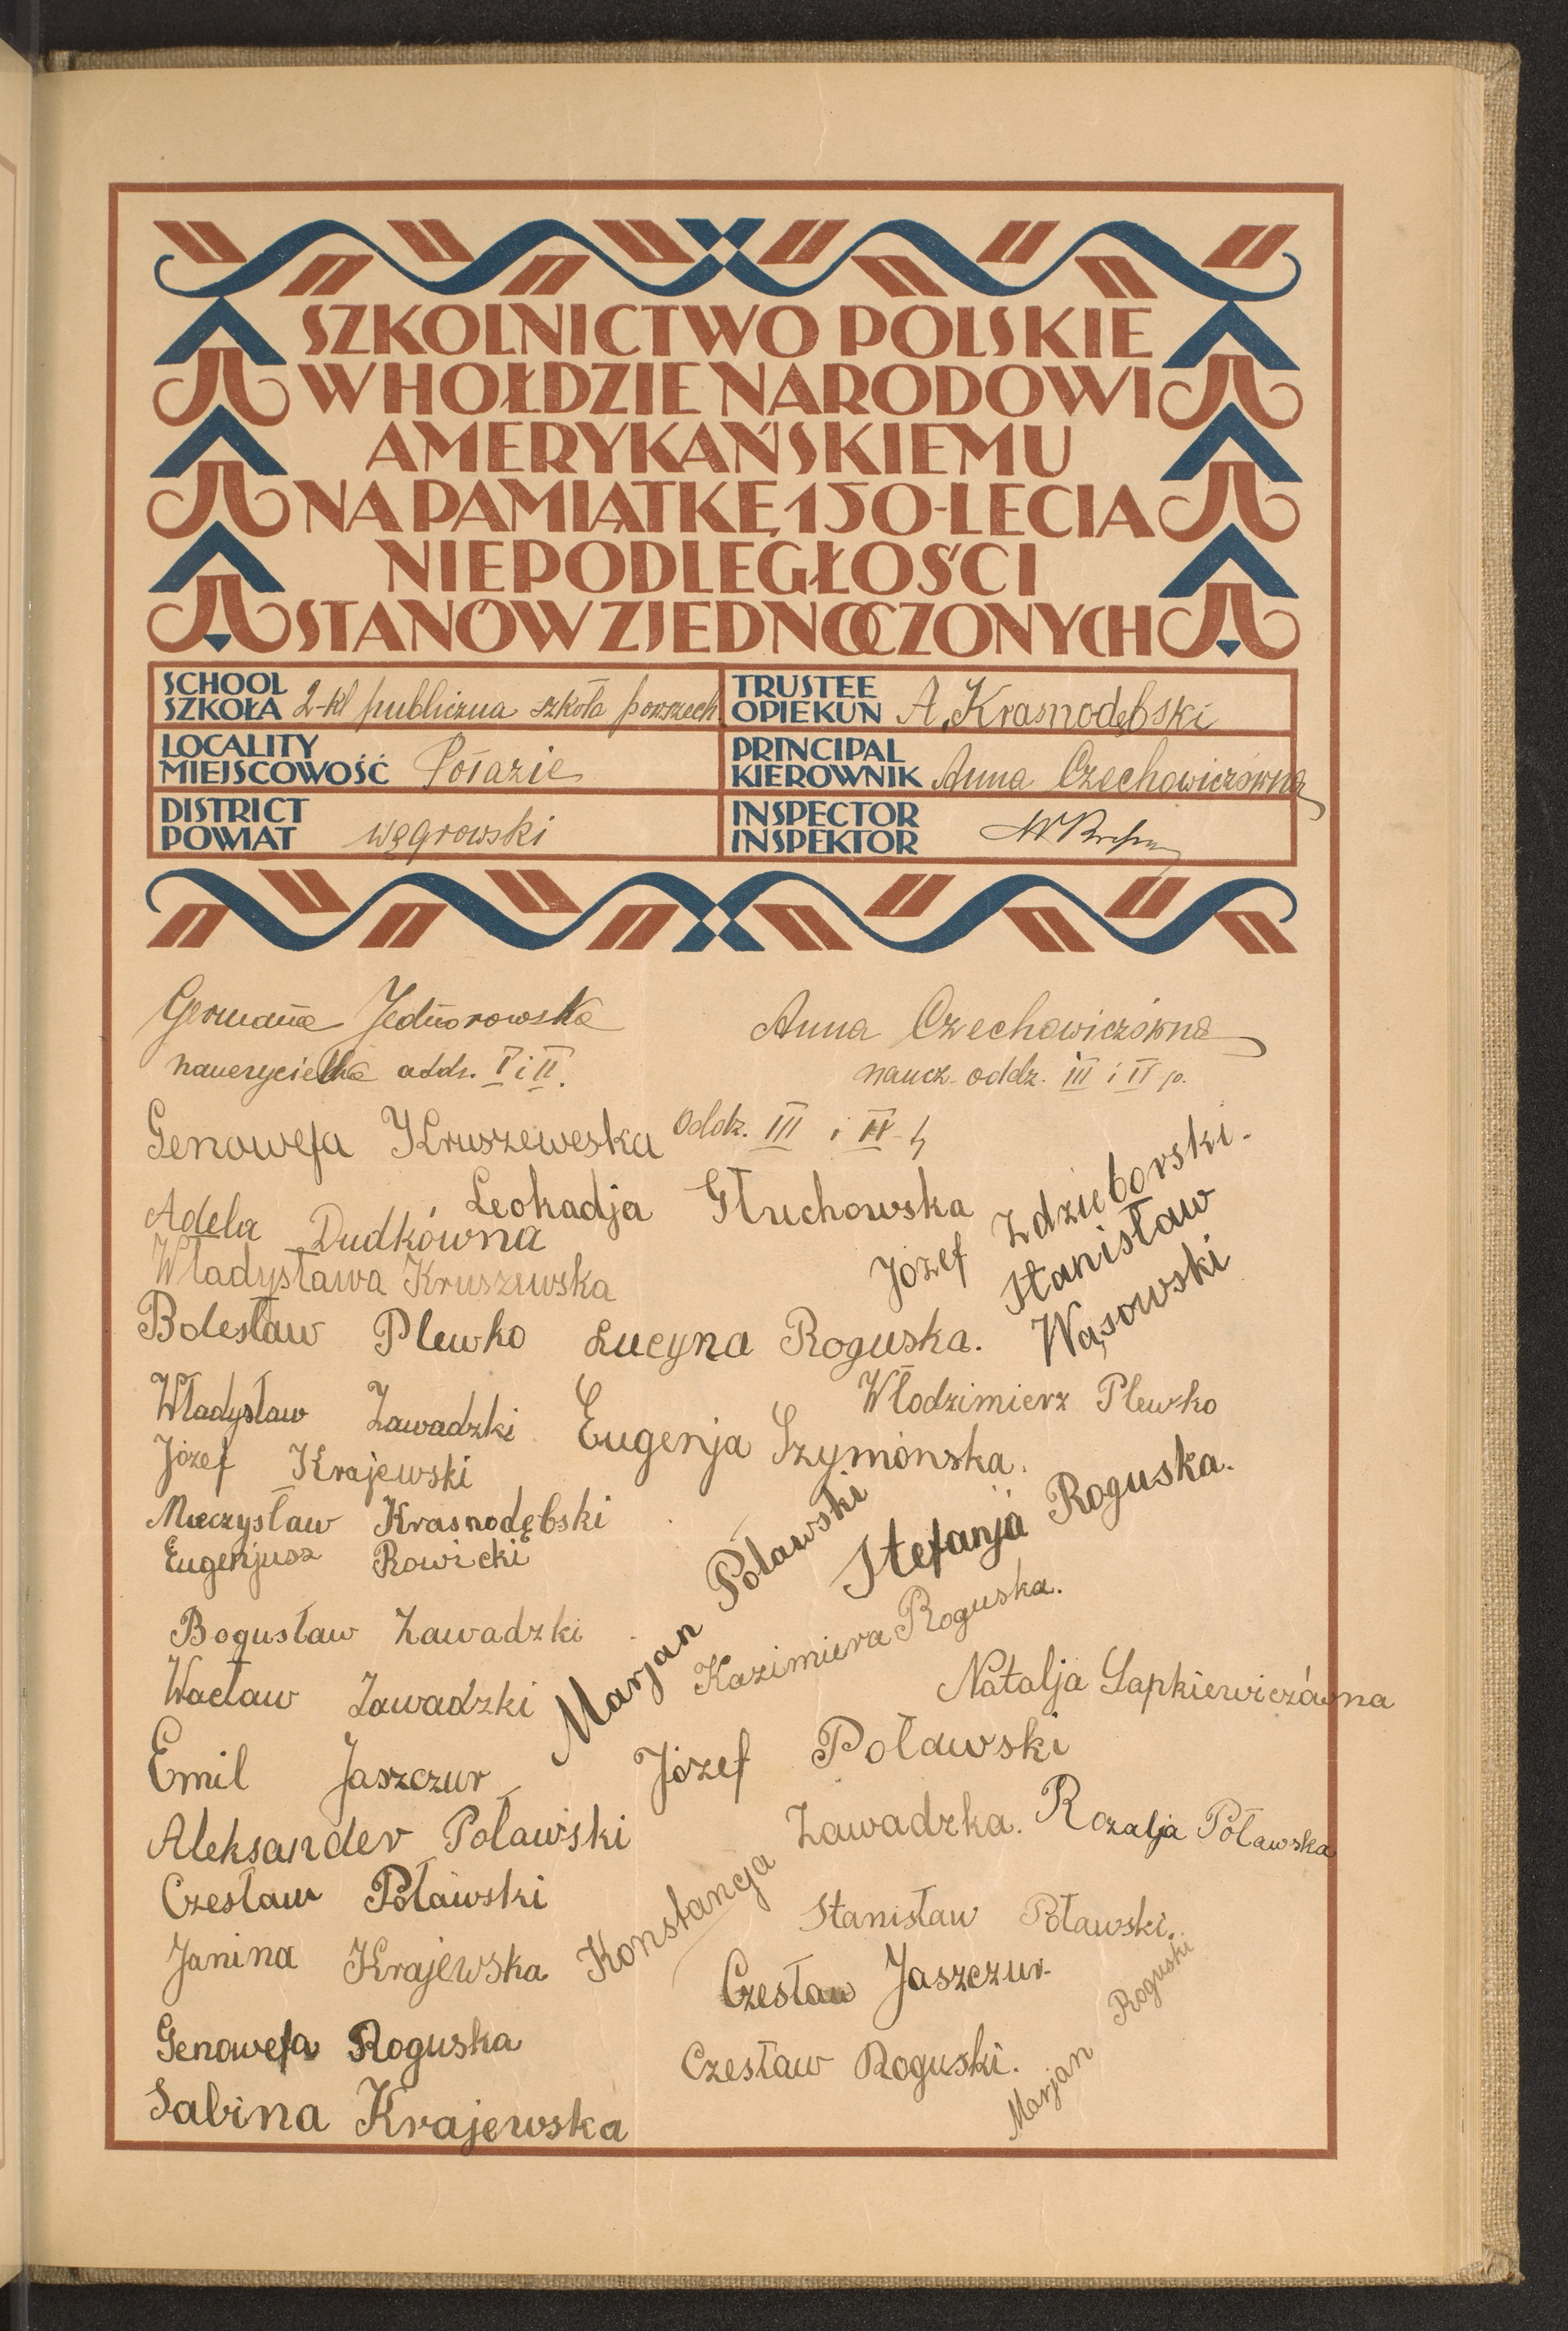 SZKOLNICTWO POLSKIE
W HOŁDZIE NARODOWI
AMERYKAŃSKIEMU
NA PAMIĄTKĘ 150-LECIA
NIEPODLEGŁOŚCI
STANÓW ZJEDNOCZONYCH
SCHOOL
SZKOŁA 2-kl publiczna szkoła powszech.
TRUSTEE
OPIEKUN A. Krasnodębski
LOCALITY
MIEJSCOWOŚĆ Połazie
PRINCIPAL
KIEROWNIK Anna Czechowiczówna
DISTRICT
POWIAT węgrowski
INSPECTOR
INSPEKTOR
Germana Jednorowska
nauczycielka oddz. I i II.
Anna Czechowiczówna
naucz. oddz. III i IV p.
Oddz. III i IV-ty
Genowefa Kruszeweska
Leokadja Głuchowska
Adela Dudkówna
Władysława Kruszewska
Józef Zdzieborski.
Stanisław
Wąsowski
Bolesław Plewko
Lucyna Roguska.
Włodzimierz Plewko
Władysław Zawadzki
Eugenja Szymónska.
Józef Krajewski
Mieczysław Krasnodębski
Eugenjusz Rowicki
Marjan Poławski
Stefanja Roguska.
Kazimiera Roguska.
Bogusław Zawadzki
Wacław Zawadzki
Natalja Sapkiewiczówna
Emil Jaszczur
Józef Poławski
Aleksander Poławski
Konstancja Zawadzka.
Rozalja Poławska
Czesław Poławski
Stanisław Poławski.
Janina Krajewska
Czesław Jaszczur
Genowefa Roguska
Czesław Roguski.
Marjan Roguski
Sabina Krajewska